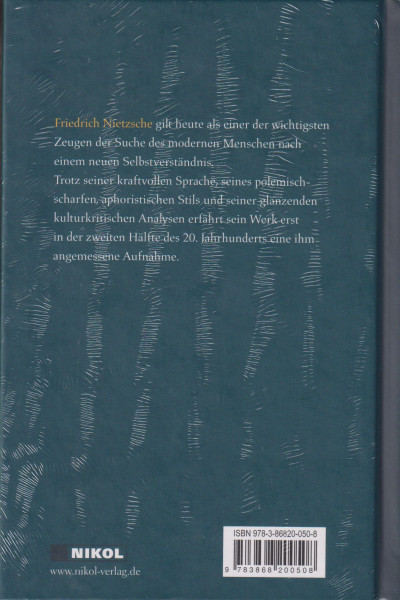 Friedrich Nietzsche gilt heute als einer der wichtigsten
Zeugen der Suche des modernen Menschen nach
einem neuen Selbstverständnis.
Trotz seiner kraftvollen Sprache, seines polemisch-
scharfen, aphoristischen Stils und seiner glänzenden
kulturkritischen Analysen erfährt sein Werk erst
in der zweiten Hälfte des 20. Jahrhunderts eine ihm
angemessene Aufnahme.
ISBN 978-3-86820-050-8
9 783868 200508
NIKOL
www.nikol-verlag.de